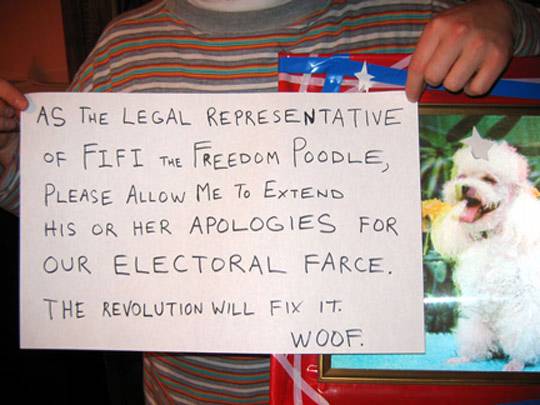 AS THE LEGAL REPRESENTATIVE
OF FIFI THE FREEDOM POODLE,
PLEASE ALLOW ME TO EXTEND
HIS OR HER APOLOGIES FOR
OUR ELECTORAL FARCE.
THE REVOLUTION WILL FIX IT.
WOOF.